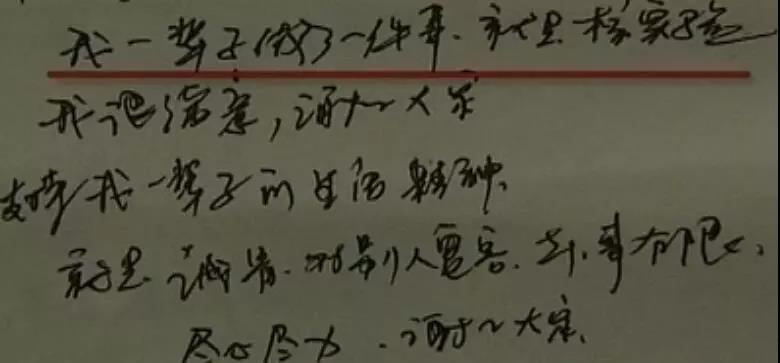 我一辈子做了一件事.就是核实验
我很满意,谢谢大家
支持我一辈子的生活精神.
就是诚 对别人宽容. 事有
尽心尽力.谢谢大家.